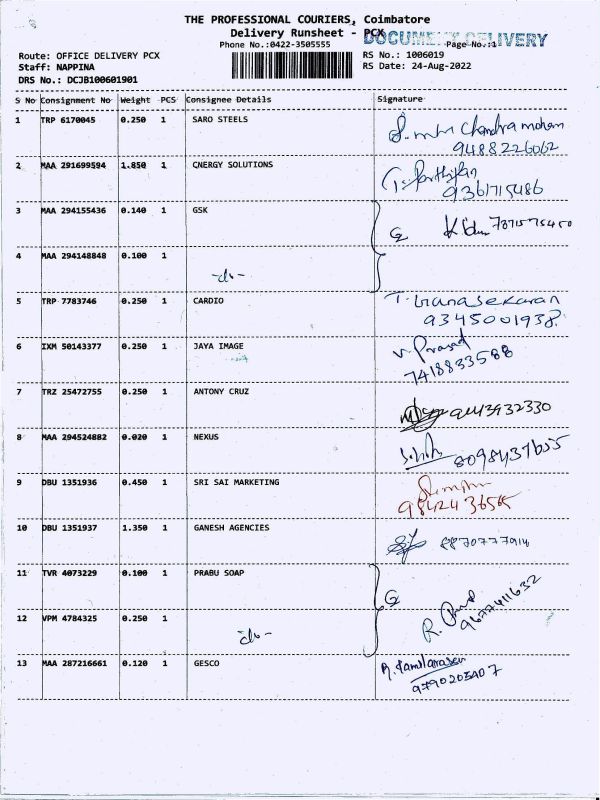 THE PROFESSIONAL COURIERS, Coimbatore
Delivery Runsheet - PCX
DOCUMENT DELIVERY
Phone No.:0422-3505555 Page No.:1
Route: OFFICE DELIVERY PCX RS No.: 1006019
Staff: NAPPINA RS Date: 24-Aug-2022
DRS No.: DCJB100601901
S No Consignment No Weight PCS Consignee Details Signature
1 TRP 6170045 0.250 1 SARO STEELS
Chandra mohan
9488226062
2 MAA 291699594 1.850 1 CNERGY SOLUTIONS
9361715486
3 MAA 294155436 0.140 1 GSK
4 MAA 294148848 0.100 1
-do-
5 TRP 7783746 0.250 1 CARDIO T. Gunasekaran
9345001938.
6 IXM 50143377 0.250 1 JAYA IMAGE V. Prasad
7418833588
7 TRZ 25472755 0.250 1 ANTONY CRUZ
8 MAA 294524882 0.020 1 NEXUS
8098437655
9 DBU 1351936 0.450 1 SRI SAI MARKETING
10 DBU 1351937 1.350 1 GANESH AGENCIES
8870777914
11 TVR 4073229 0.100 1 PRABU SOAP
9677411632
12 VPM 4784325 0.250 1
-do-
13 MAA 287216661 0.120 1 GESCO
9790203407